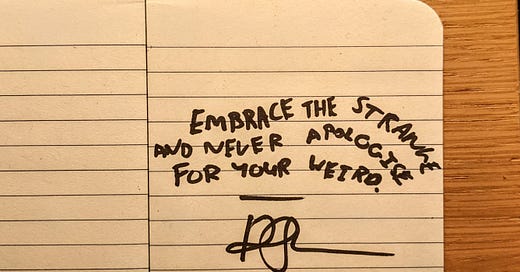 EMBRACE THE STRANGE
AND NEVER APOLOGISE
FOR YOUR WEIRD.